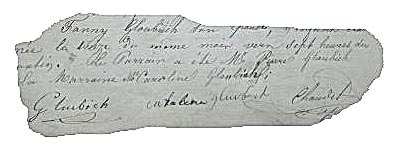 Fanny Gloubich son épouse,
née le onze du même mois vers sept heures du
matin. Le Parrain a été Mr Pierre Gloubich
La Marraine Caroline Gloubich
Glubich catalena glubich Chaudet